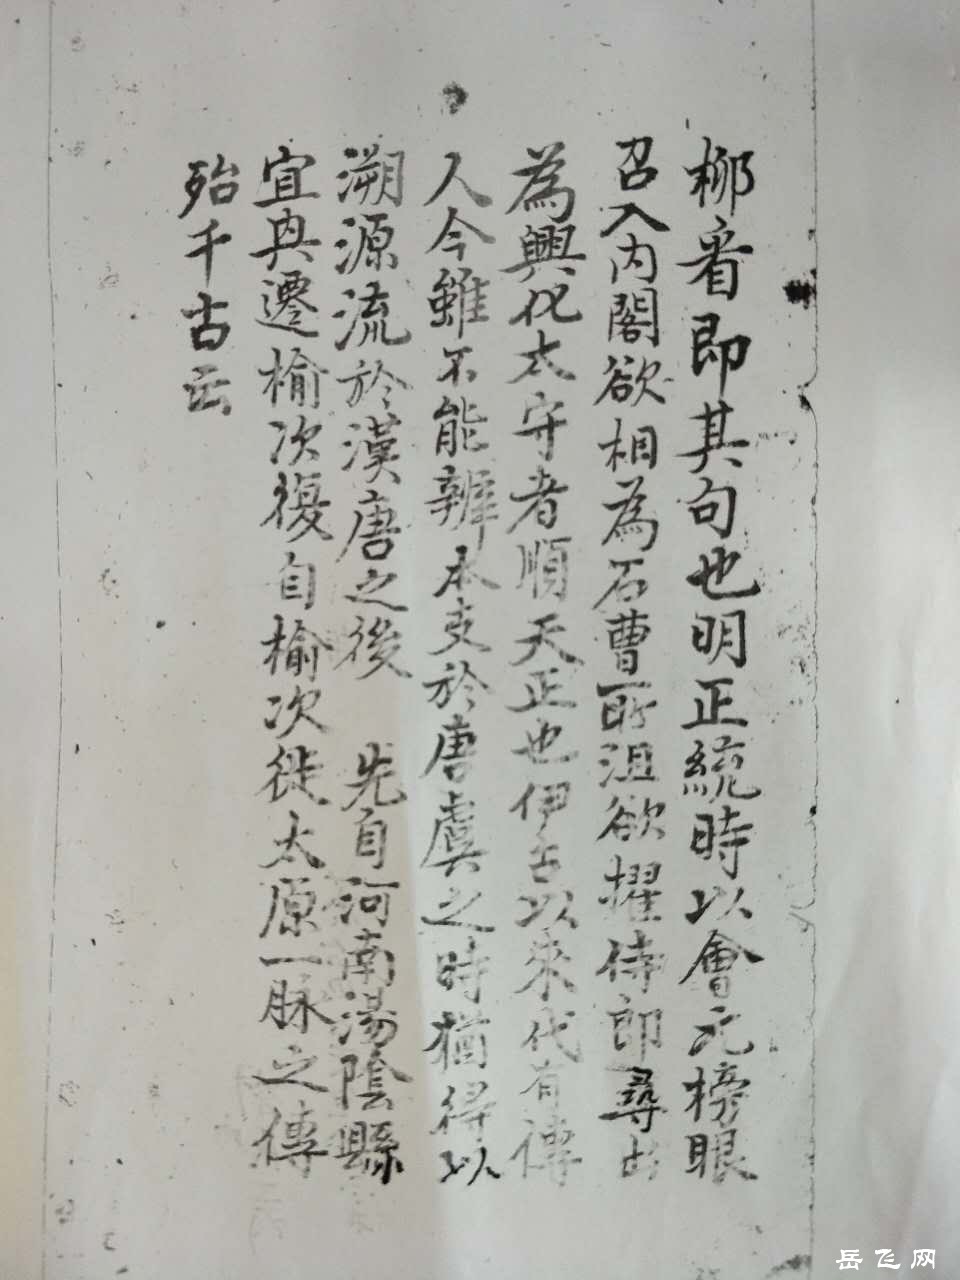 柳看即其句也明正統時以會元榜眼
召入內閣欲相為石曹所沮欲擢侍郎尋出
為興化太守者順天正也伊古以來代有偉
人今雖不能辨本支於唐虞之時猶得以
溯源流於漢唐之後 先自河南湯陰縣
宜興遷榆次復自榆次徙太原一脉之傳
殆千古云
岳飞网